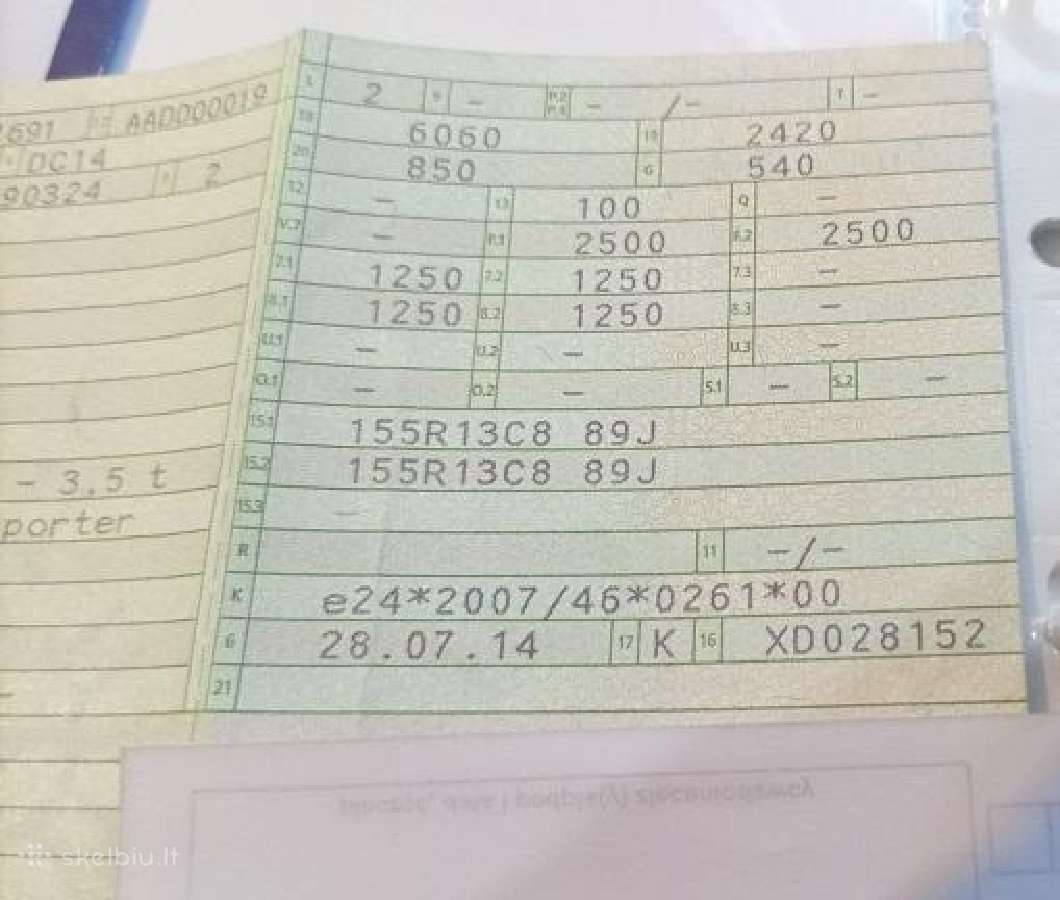 2691 AAD000019
DC14
90324 2
- 3,5 t
porter
L 2 9 - P.2 P.4 - /- T -
18 6060 19 2420
20 850 G 540
12 - 13 100 Q -
V.7 - F.1 2500 F.2 2500
7.1 1250 7.2 1250 7.3 -
8.1 1250 8.2 1250 8.3 -
U.1 - U.2 - U.3 -
O.1 - O.2 - S.1 - S.2 -
15.1 155R13C8 89J
15.2 155R13C8 89J
15.3 -
R 11 -/-
K e24*2007/46*0261*00
6 28.07.14 17 K 16 XD028152
21
skelbiu.lt